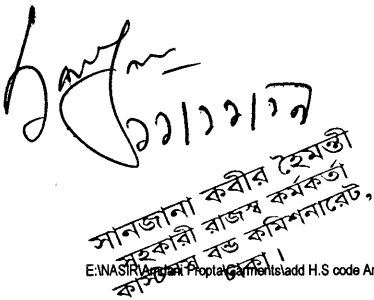 সানজানা কবীর হৈমন্তী
সহকারী রাজস্ব কর্মকর্তা
কাস্টমস বন্ড কমিশনারেট,
ঢাকা।
E:\NASIR\Amdani Propta\Garments\add H.S code Ar